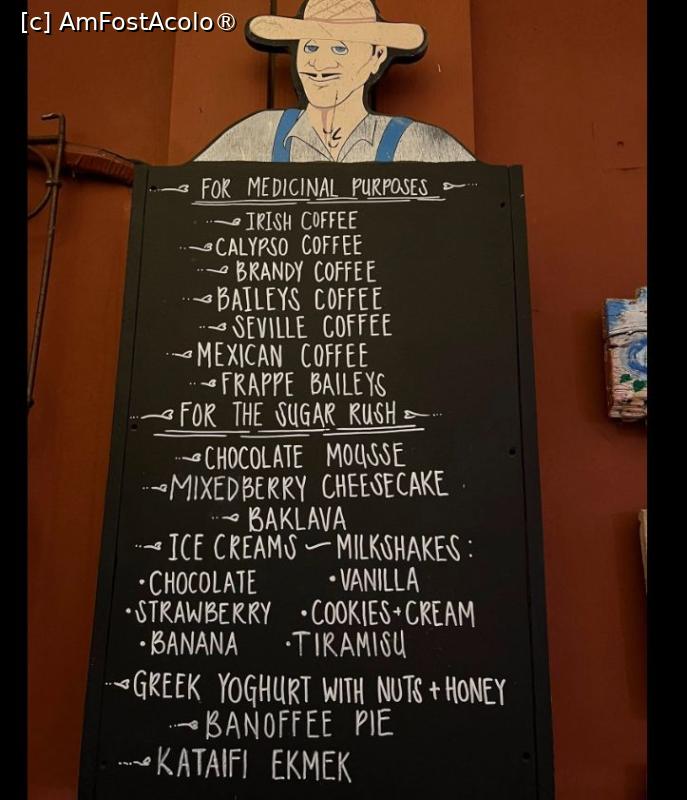 [c] AmFostAcolo®
FOR MEDICINAL PURPOSES
IRISH COFFEE
CALYPSO COFFEE
BRANDY COFFEE
BAILEYS COFFEE
SEVILLE COFFEE
MEXICAN COFFEE
FRAPPE BAILEYS
FOR THE SUGAR RUSH
CHOCOLATE MOUSSE
MIXEDBERRY CHEESECAKE
BAKLAVA
ICE CREAMS ~ MILKSHAKES:
•CHOCOLATE •VANILLA
•STRAWBERRY •COOKIES+CREAM
•BANANA •TIRAMISU
GREEK YOGHURT WITH NUTS + HONEY
BANOFFEE PIE
KATAIFI EKMEK